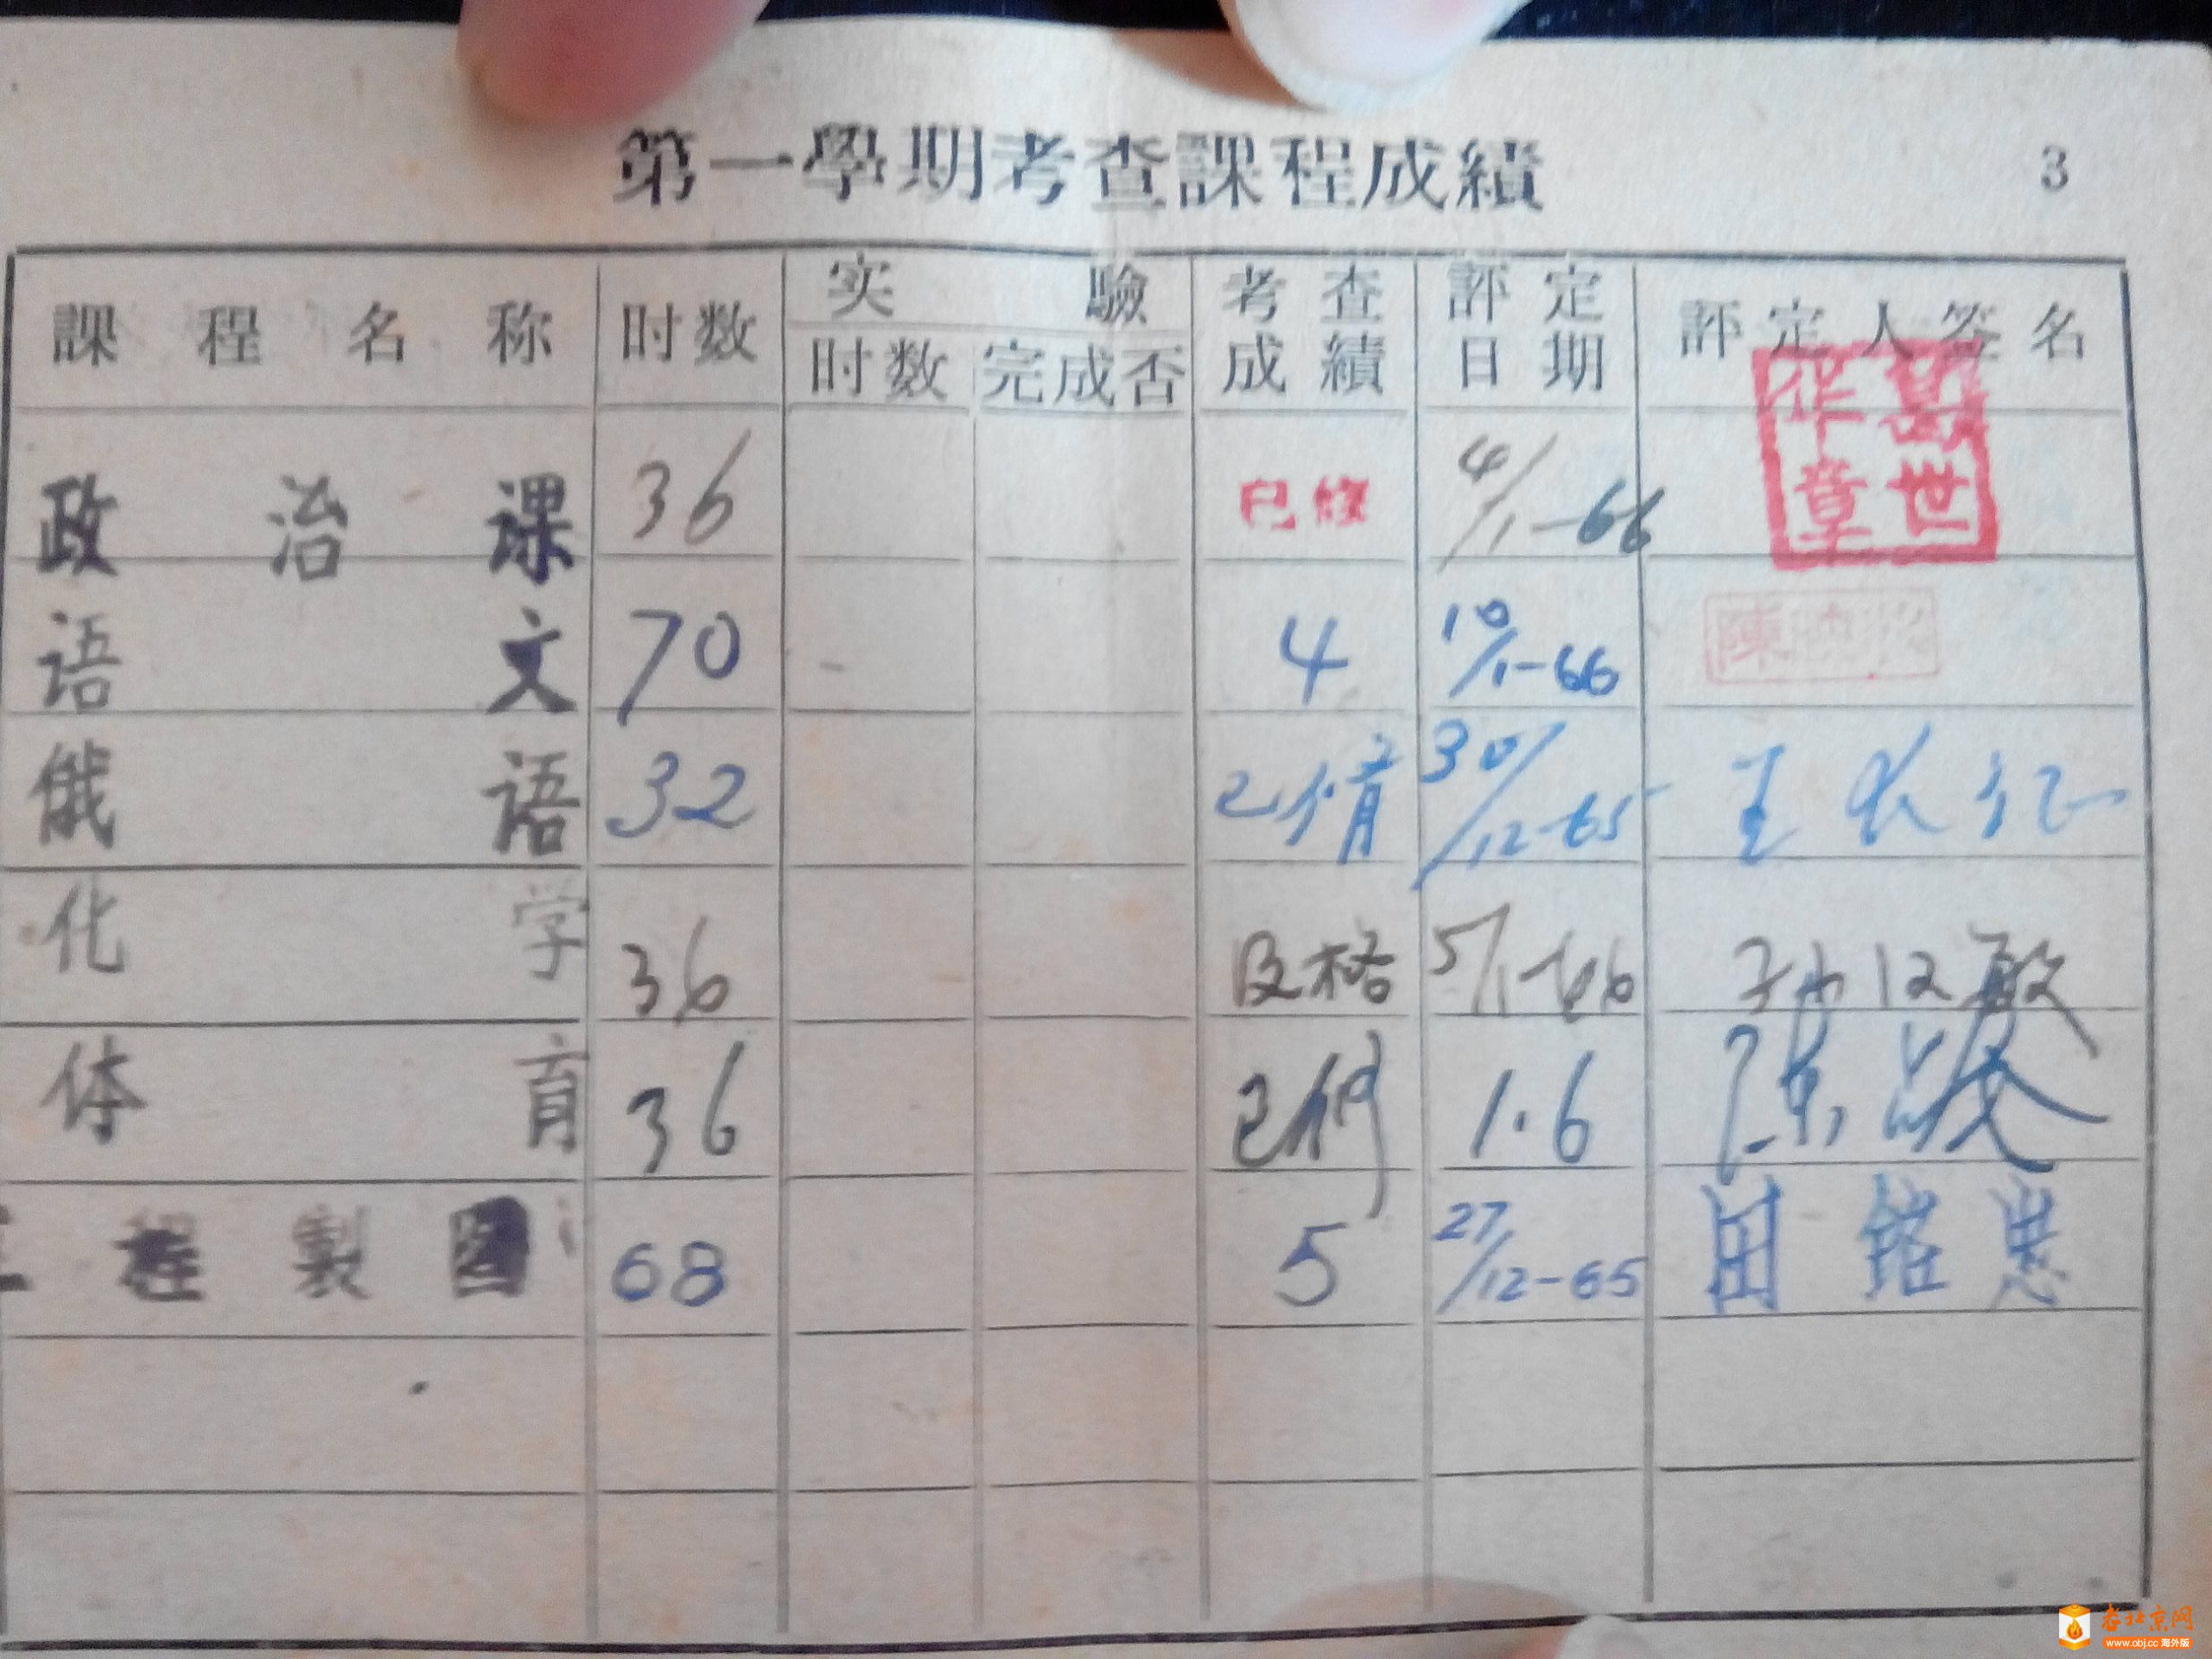 第一學期考查課程成績 3
課程名称 时数 实驗 考查成績 評定日期 評定人签名
时数 完成否
政治课 36 已修 4/1-66 葛世华章
语文 70 4 10/1-66 陳
俄语 32 已修 30/12-65 王长征
化学 36 及格 5/1-66 孙 敏
体育 36 已 1.6 陈
工程製图 68 5 27/12-65 田 
老北京网
www.obj.cc 海外版